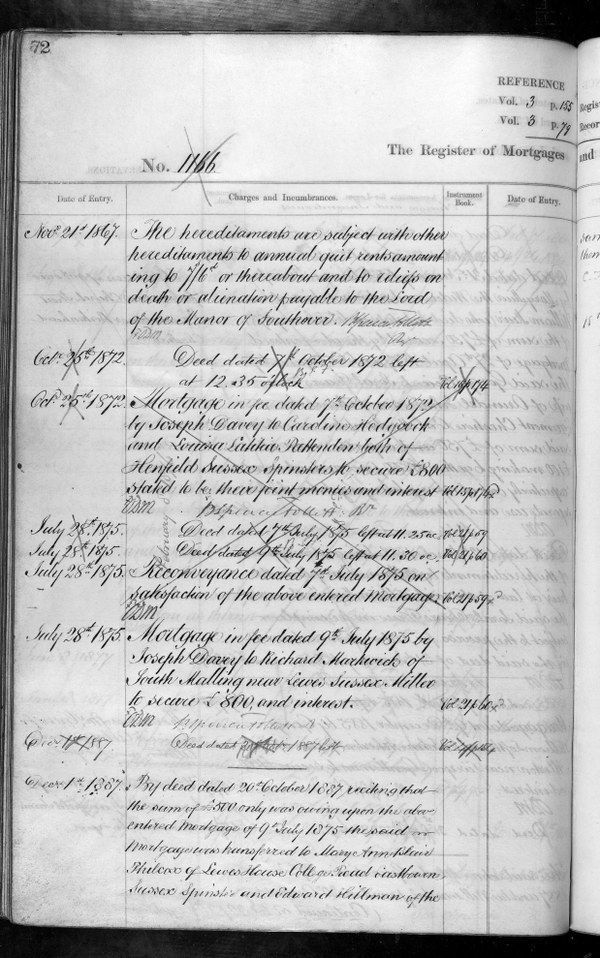 72
REFERENCE
Vol. 3 p. 155
Vol. 3 p. 79
The Register of Mortgages
No. 1166
Date of Entry. Charges and Incumbrances. Instrument Book. Date of Entry.
Novr 21st 1867. The hereditaments are subject with other
hereditaments to annual quit rents amount
ing to 7/6d or thereabout and to reliefs on
death or alienation payable to the Lord
of the Manor of Southover.
Octr 25th 1872. Deed dated 7th October 1872 left
at 12.35 o'clock Vol 15 p 174
Octr 25th 1872. Mortgage in fee dated 7th October 1872
by Joseph Davey to Caroline Hedgcock
and Louisa Pattenden both of
Henfield Sussex Spinsters to secure £800
stated to be there joint monies and interest
July 28th 1875. Deed dated 7th July 1875 left at 11.25 Vol 21 p 59
July 28th 1875. Deed dated 9th July 1875 left at 11.30 Vol 21 p 60
July 28th 1875. Reconveyance dated 7th July 1875 on
satisfaction of the above entered Mortgage Vol 21 p 59
July 28th 1875 Mortgage in fee dated 9th July 1875 by
Joseph Davey to Richard Markwick of
South Malling near Lewes Sussex Miller
to secure £800, and interest. Vol 21 p 60
Decr 1st 1887 Deed dated 1887 left
Decr 1st 1887. By deed dated 20th October 1887 reciting that
the sum of £500 only was owing upon the above
entered Mortgage of 9th July 1875 the said
Mortgage was transferred to Mary Ann Blair
Philcox of Lewes House College Road Eastbourn
Sussex Spinster and Edward Hillman of the